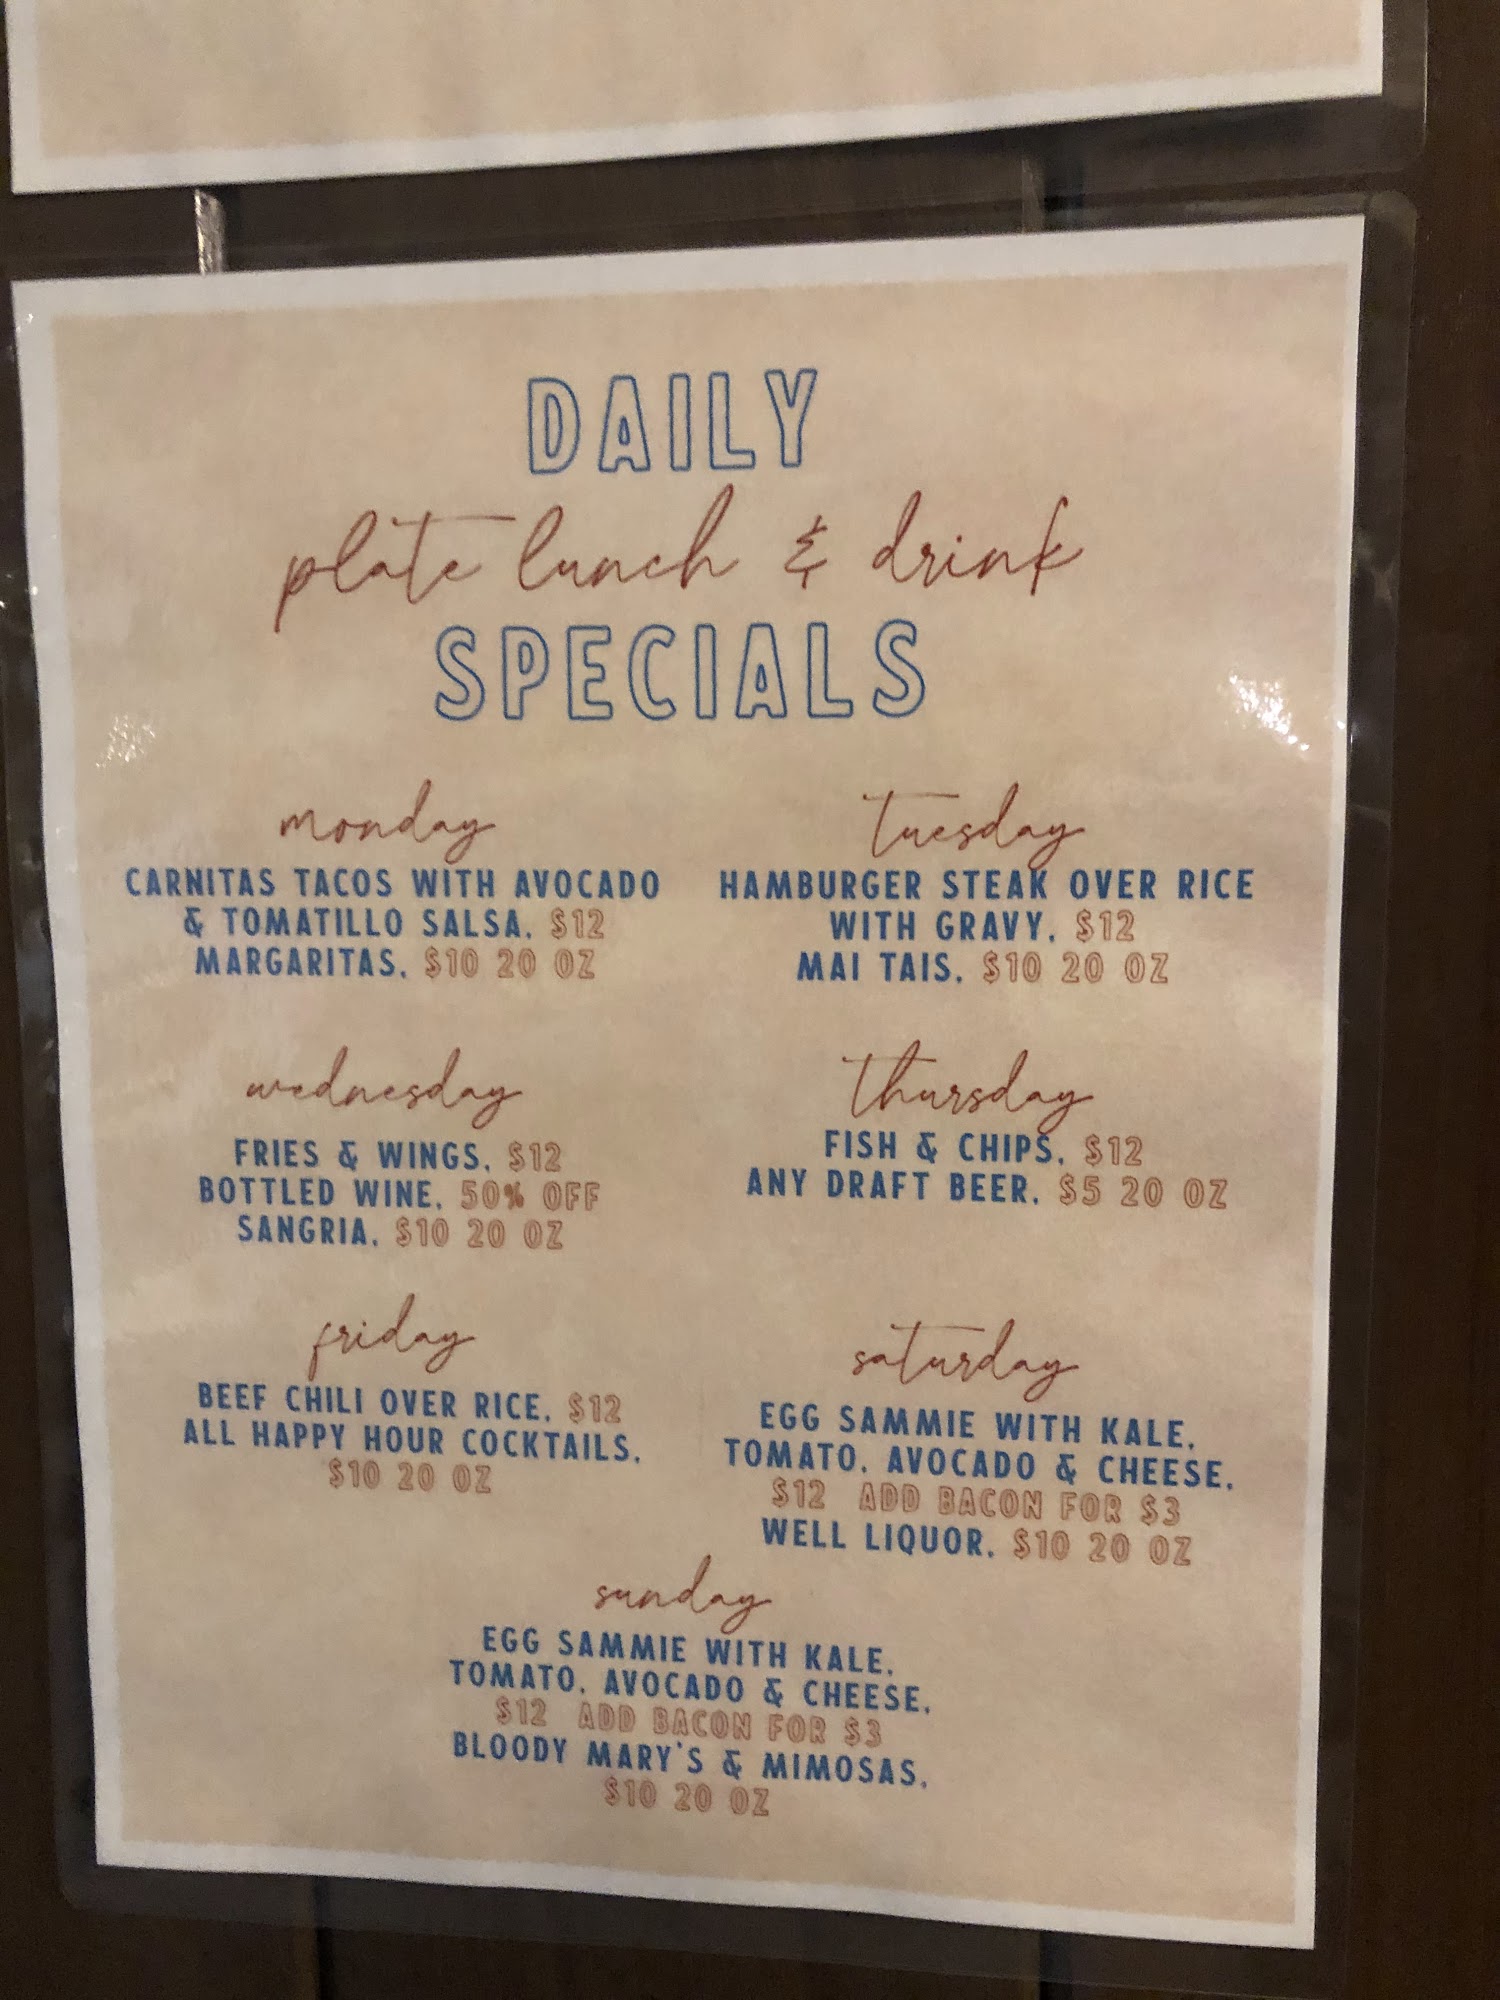 DAILY
plate lunch & drink
SPECIALS
monday
CARNITAS TACOS WITH AVOCADO
& TOMATILLO SALSA, $12
MARGARITAS, $10 20 OZ
tuesday
HAMBURGER STEAK OVER RICE
WITH GRAVY, $12
MAI TAIS, $10 20 OZ
wednesday
FRIES & WINGS, $12
BOTTLED WINE, 50% OFF
SANGRIA, $10 20 OZ
thursday
FISH & CHIPS, $12
ANY DRAFT BEER, $5 20 OZ
friday
BEEF CHILI OVER RICE, $12
ALL HAPPY HOUR COCKTAILS,
$10 20 OZ
saturday
EGG SAMMIE WITH KALE,
TOMATO, AVOCADO & CHEESE,
$12 ADD BACON FOR $3
WELL LIQUOR, $10 20 OZ
sunday
EGG SAMMIE WITH KALE,
TOMATO, AVOCADO & CHEESE,
$12 ADD BACON FOR $3
BLOODY MARY'S & MIMOSAS,
$10 20 OZ